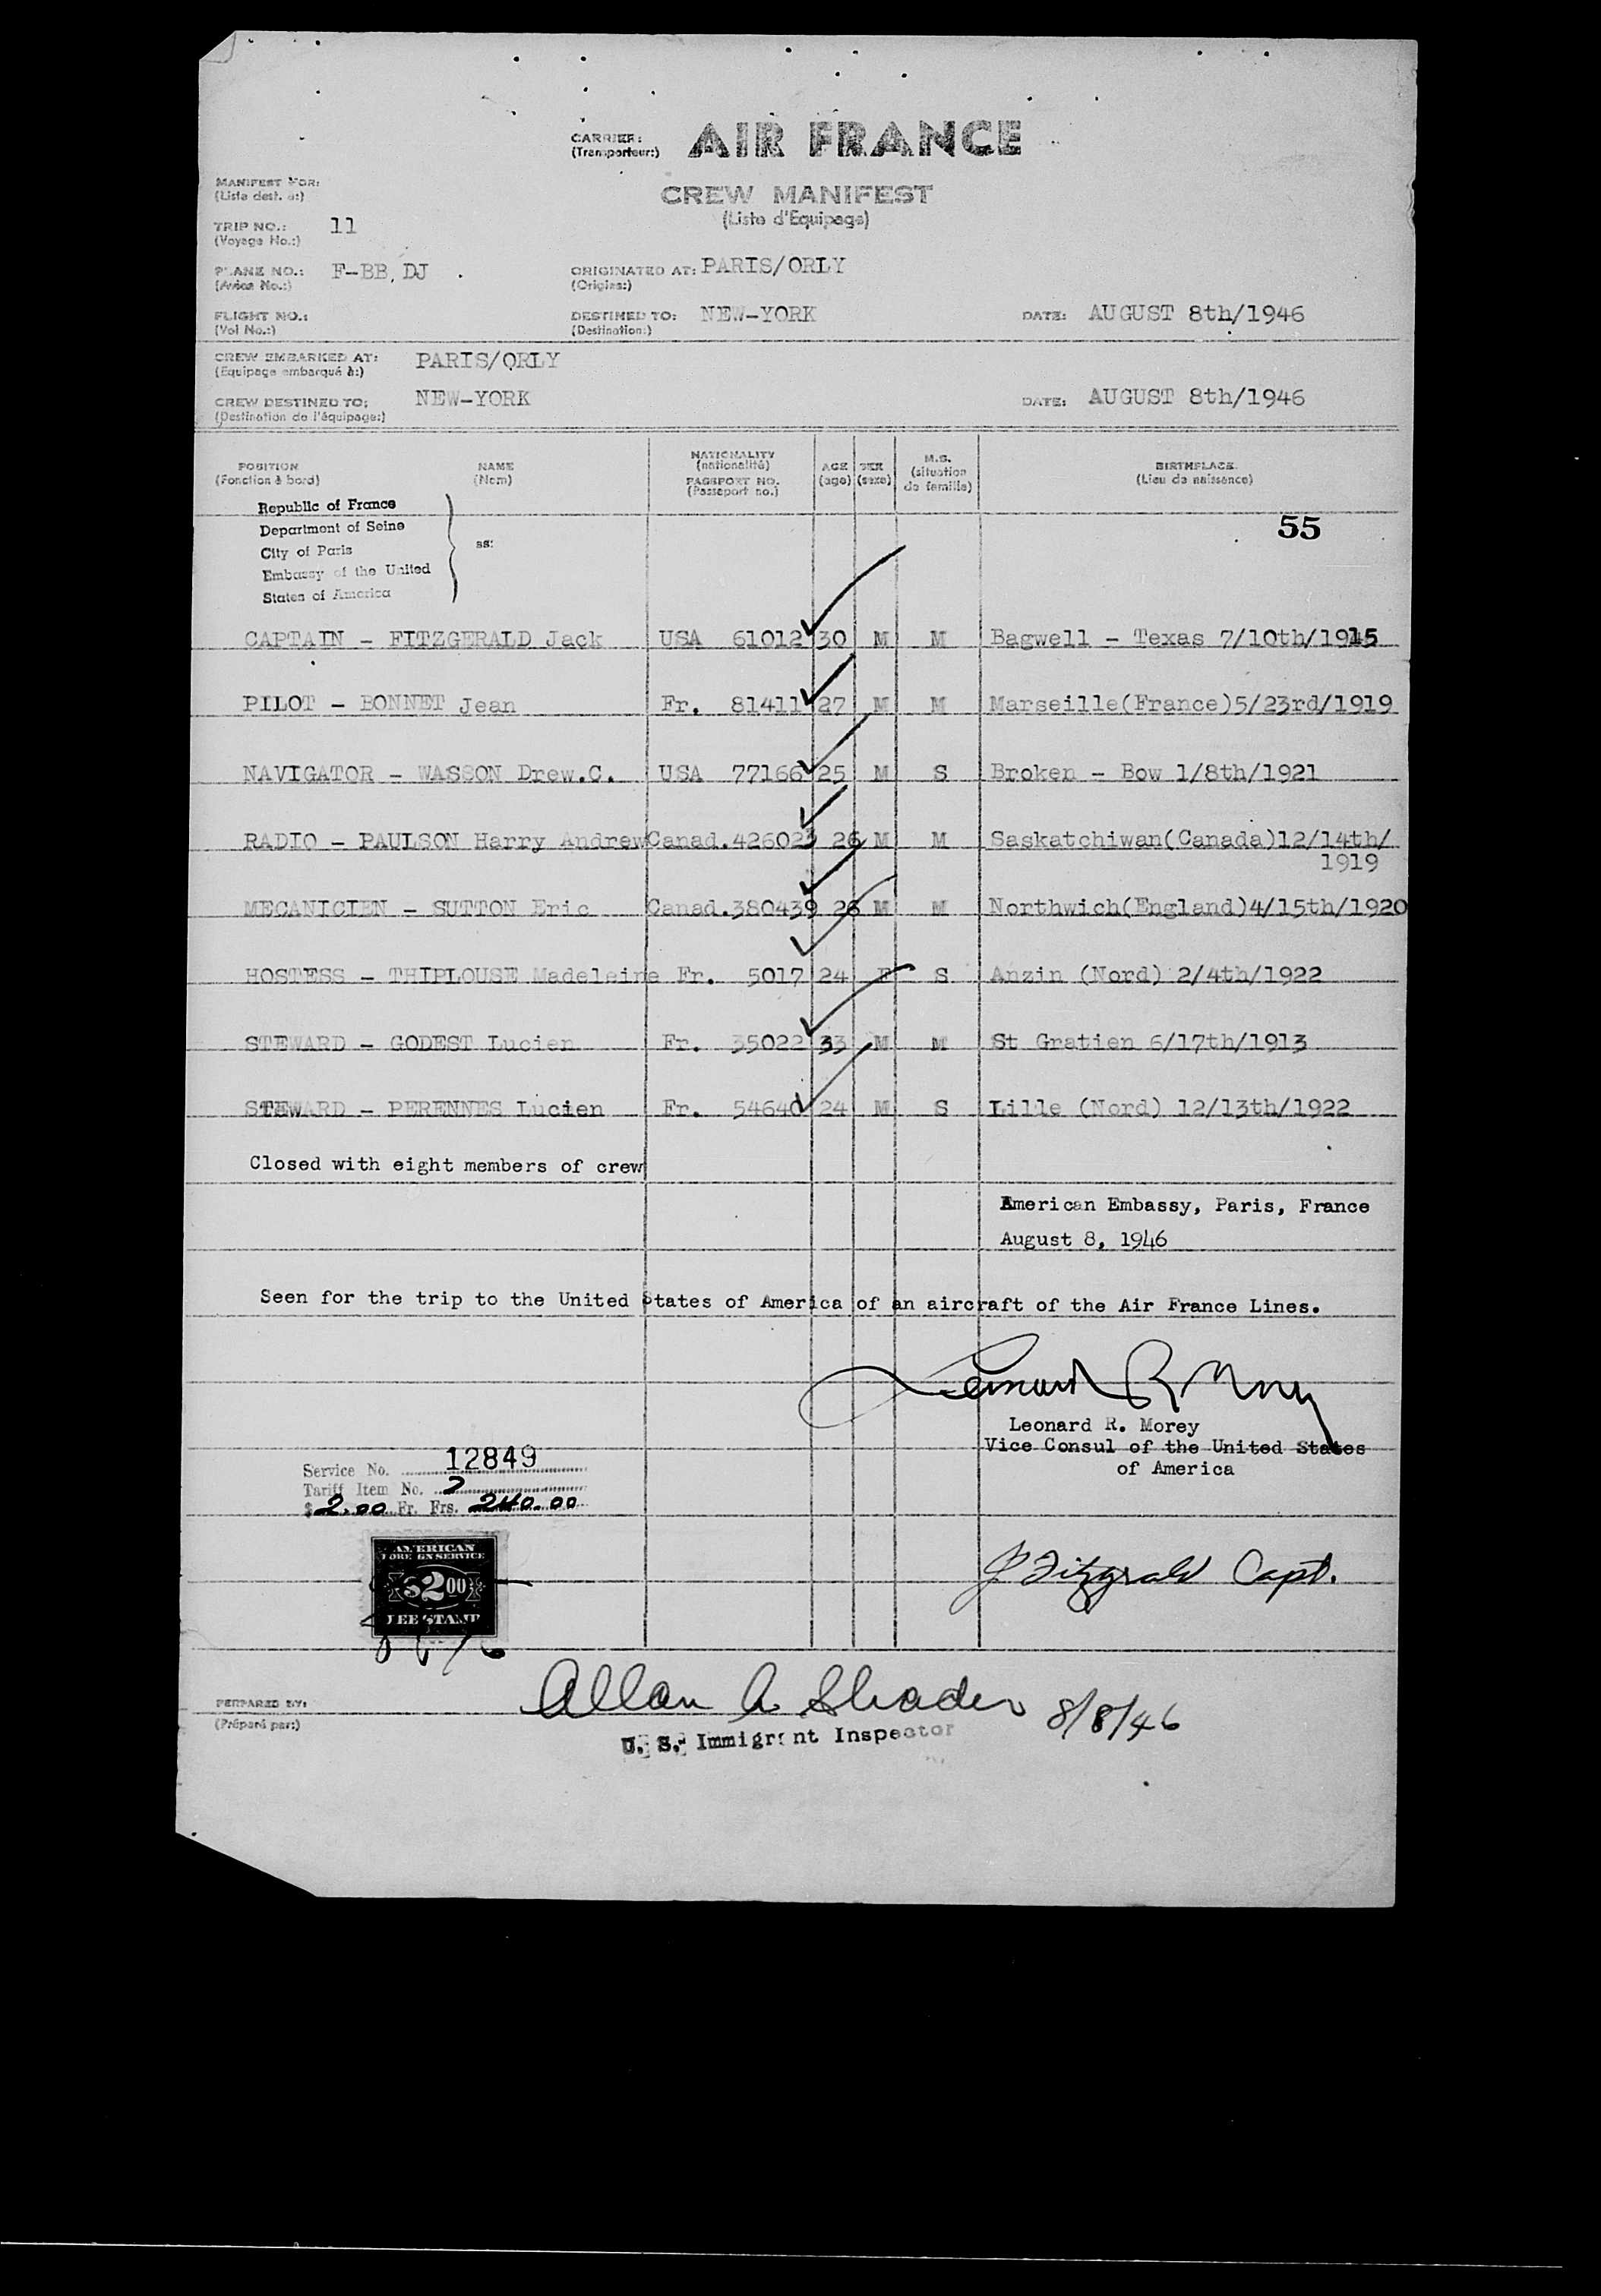 CARRIER: AIR FRANCE
(Transporteur:)
MANIFEST FOR:
(Liste dest. a:)
CREW MANIFEST
(Liste d'Equipage)
TRIP NO.: 11
(Voyage No.:)
PLANE NO.: F-BB,DJ
(Avion No.:)
ORIGINATED AT: PARIS/ORLY
(Origine:)
FLIGHT NO.:
(Vol No.:)
DESTINED TO: NEW-YORK
(Destination:)
DATE: AUGUST 8th/1946
CREW EMBARKED AT: PARIS/ORLY
(Equipage embarqué à:)
CREW DESTINED TO: NEW-YORK
(Destination de l'équipage:)
DATE: AUGUST 8th/1946
POSITION
(Fonction à bord)
NAME
(Nom)
NATIONALITY
(nationalité)
PASSPORT NO.
(Passeport no.)
AGE
(age)
SEX
(sexe)
M.S.
(situation
de famille)
BIRTHPLACE
(Lieu de naissance)
Republic of France
Department of Seine
City of Paris
Embassy of the United
States of America
ss:
55
CAPTAIN - FITZGERALD Jack USA 61012 30 M M Bagwell - Texas 7/10th/1915
PILOT - BONNET Jean Fr. 81411 27 M M Marseille(France)5/23rd/1919
NAVIGATOR - WASSON Drew.C. USA 77166 25 M S Broken - Bow 1/8th/1921
RADIO - PAULSON Harry Andrew Canad.426023 26 M M Saskatchiwan(Canada)12/14th/
1919
MECANICIEN - SUTTON Eric Canad.380439 26 M M Northwich(England)4/15th/1920
HOSTESS - THIPLOUSE Madeleine Fr. 5017 24 F S Anzin (Nord) 2/4th/1922
STEWARD - GODEST Lucien Fr. 35022 33 M M St Gratien 6/17th/1913
STEWARD - PERENNES Lucien Fr. 54640 24 M S Lille (Nord) 12/13th/1922
Closed with eight members of crew
American Embassy, Paris, France
August 8, 1946
Seen for the trip to the United States of America of an aircraft of the Air France Lines.
Leonard R Morey
Leonard R. Morey
Vice Consul of the United States
of America
Service No. 12849
Tariff Item No. 7
$ 2.00 Fr. Frs. 240.00
AMERICAN
FOREIGN SERVICE
$2.00
FEE STAMP
J Fitzgerald Capt.
PERPARED BY:
(Préparé par:)
Allan A Shader 8/8/46
U. S. Immigrant Inspector